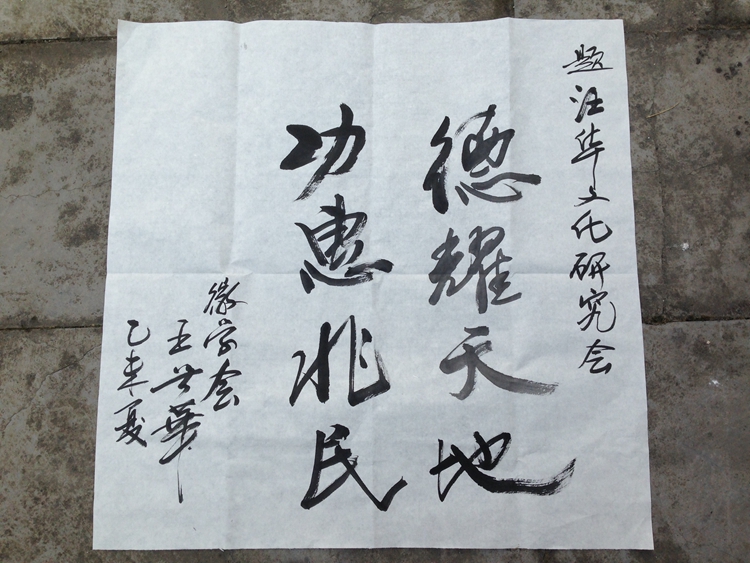 题汪华文化研究会
德耀天地
功惠兆民
徽学会
王世華
乙未夏